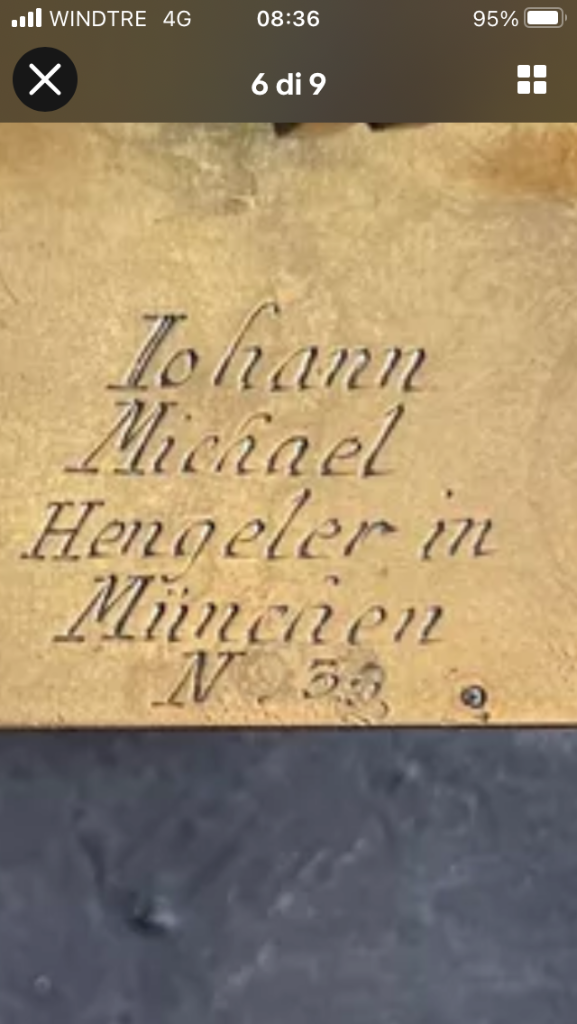 WINDTRE 4G 08:36 95%
6 di 9
Iohann
Michael
Hengeler in
München
N